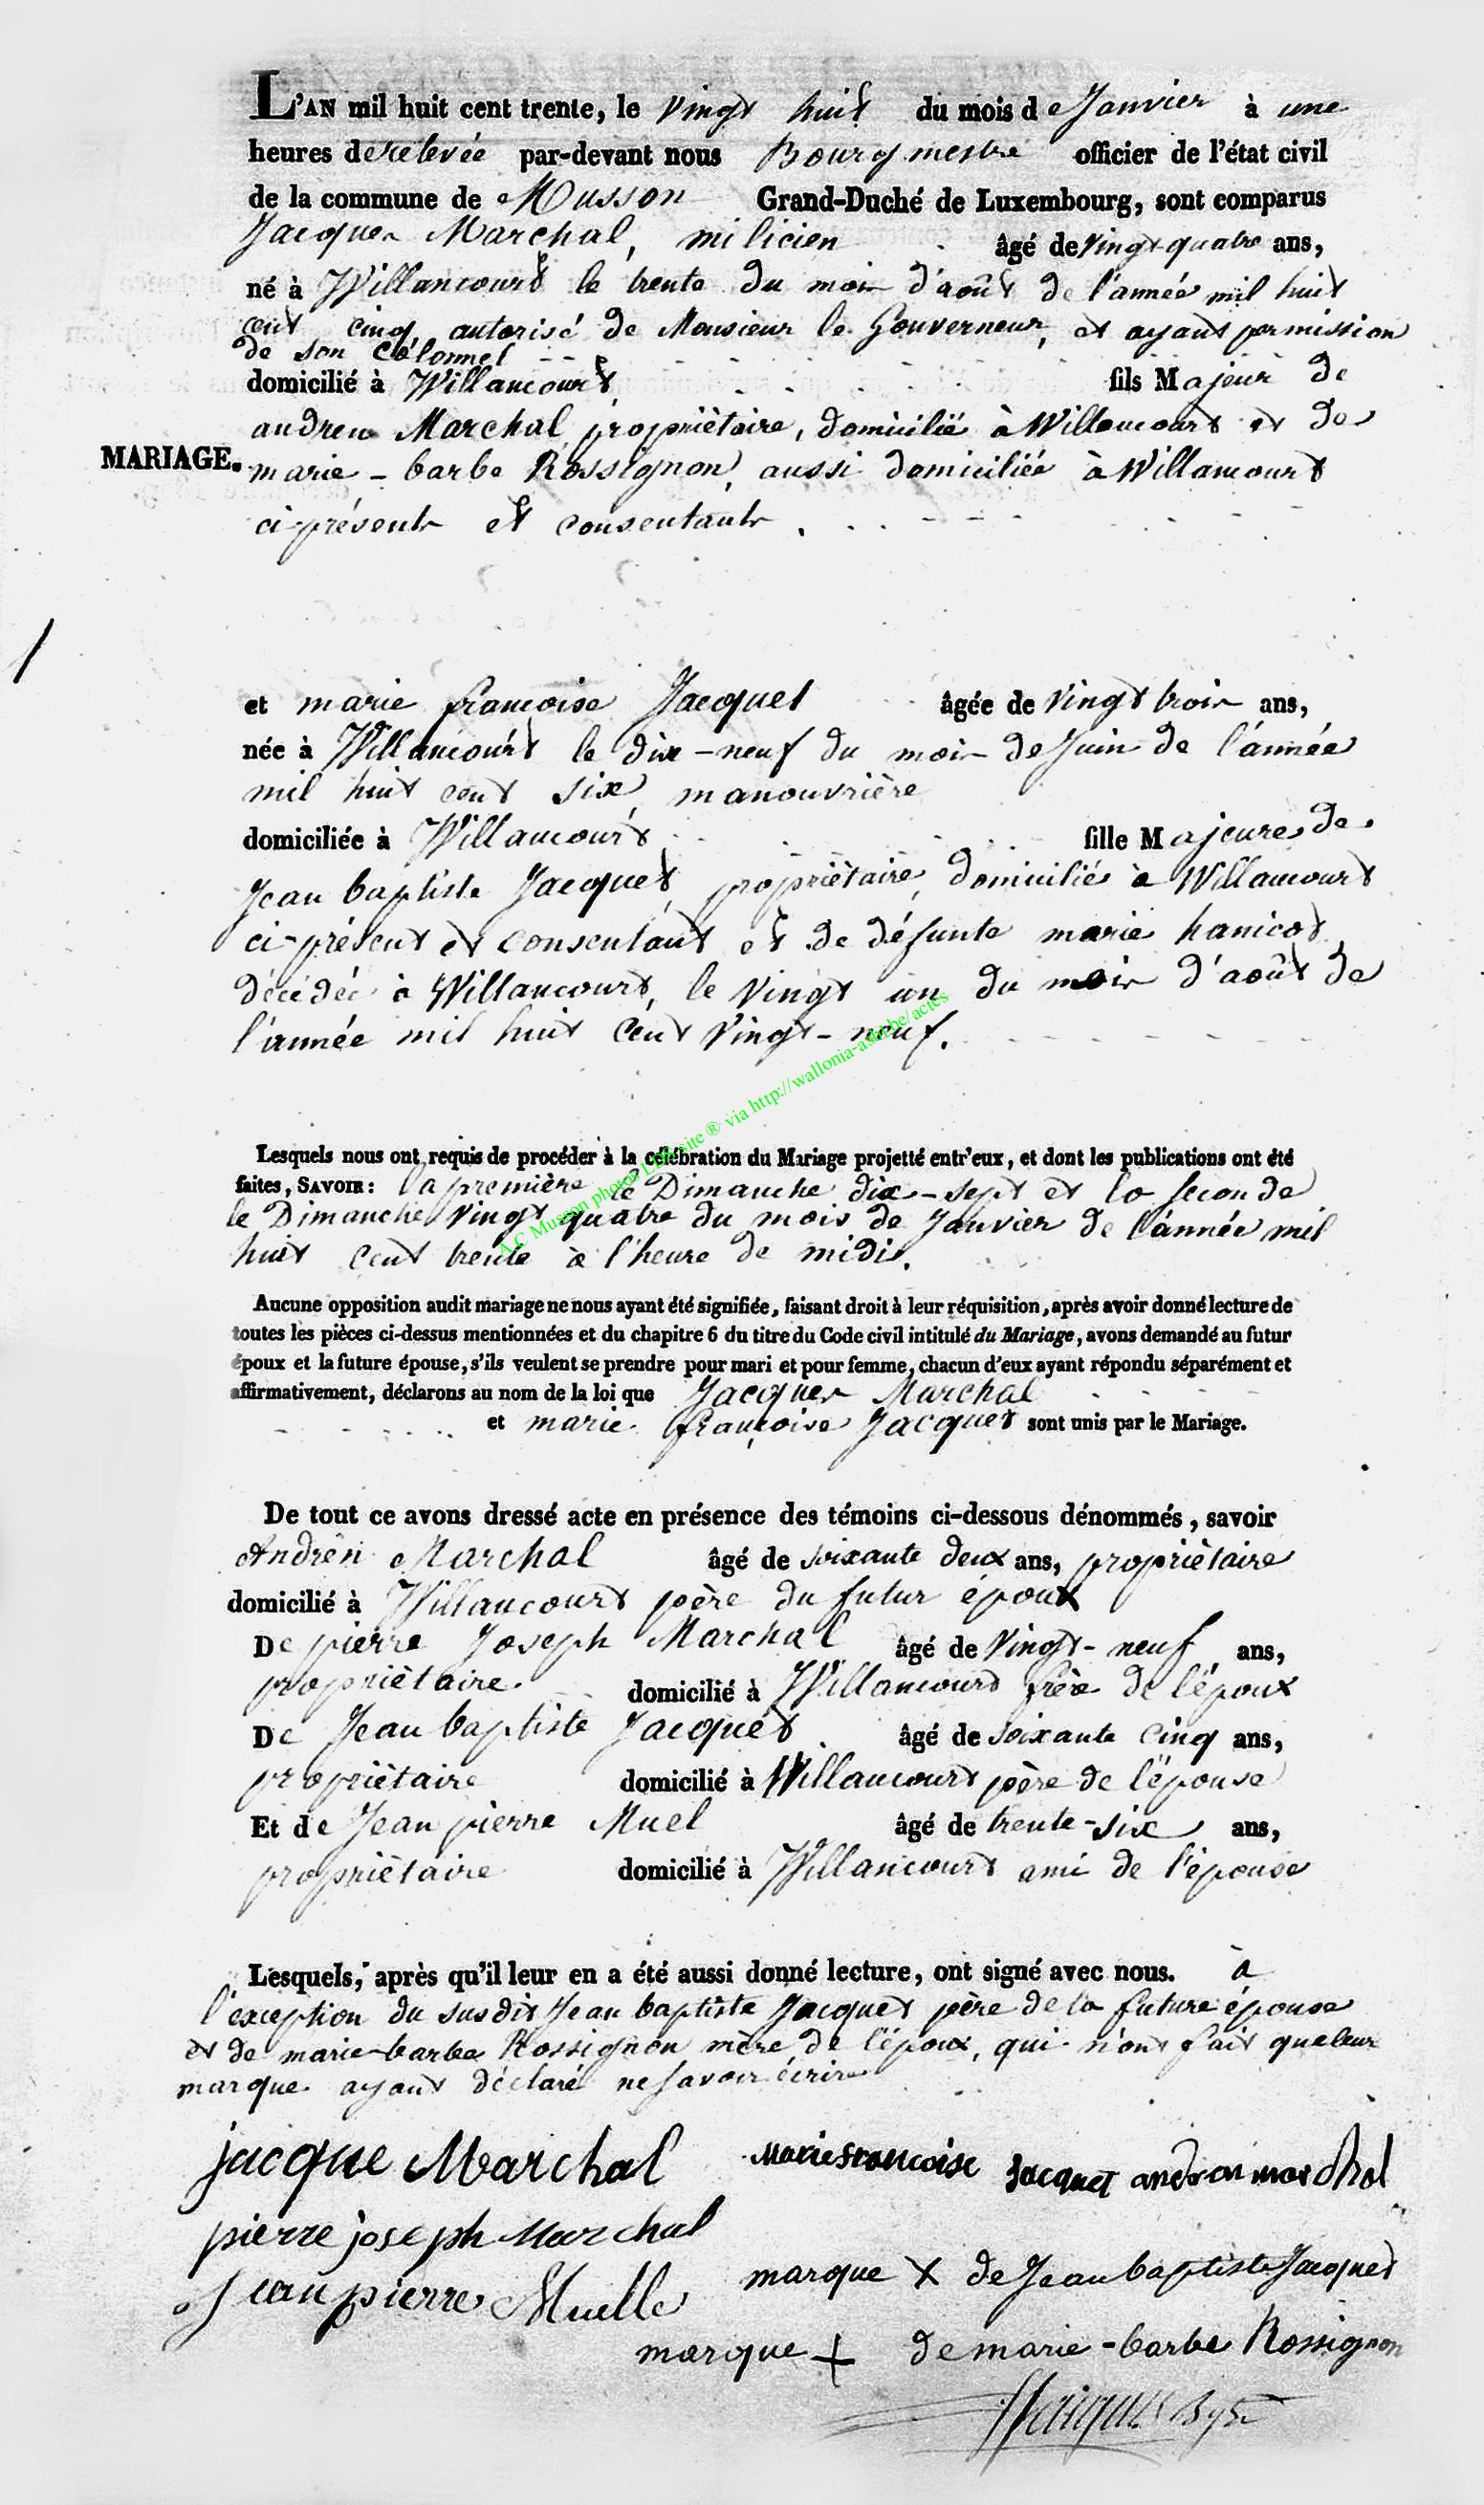 L'AN mil huit cent trente, le vingt huit du mois de Janvier à une
heures de relevée par-devant nous Bourgmestre officier de l'état civil
de la commune de Musson Grand-Duché de Luxembourg, sont comparus
Jacques Marchal, milicien âgé de vingt quatre ans,
né à Willancourt le trente du mois d'août de l'année mil huit
cent cinq, autorisé de Monsieur le Gouverneur, et ayant permission
de son Colonnel
domicilié à Willancourt, fils Majeur de
andreu Marchal, propriètaire, domicilié à Willancourt et de
MARIAGE.
marie - barbe Rossignon, aussi domiciliée à Willancourt
ci-présents et consentants.
et marie françoise Jacquet âgée de vingt trois ans,
née à Willancourt le dix-neuf du mois de Juin de l'année
mil huit cent six, manouvrière
domiciliée à Willancourt fille Majeure de
Jean baptiste Jacquet, propriètaire, domicilié à Willancourt
ci-présent et consentant et de défunte marie hanicot,
décédée à Willancourt, le vingt un du mois d'août de
l'année mil huit cent vingt-neuf.
A.C Musson photos LDS site ® via http://wallonia-asbl.be/actes
Lesquels nous ont requis de procéder à la célébration du Mariage projetté entr'eux, et dont les publications ont été
faites, SAVOIR : la première le Dimanche dix-sept et la seconde
le Dimanche vingt quatre du mois de Janvier de l'année mil
huit cent trente à l'heure de midi.
Aucune opposition audit mariage ne nous ayant été signifiée, faisant droit à leur réquisition, après avoir donné lecture de
toutes les pièces ci-dessus mentionnées et du chapitre 6 du titre du Code civil intitulé du Mariage, avons demandé au futur
époux et la future épouse, s'ils veulent se prendre pour mari et pour femme, chacun d'eux ayant répondu séparément et
affirmativement, déclarons au nom de la loi que Jacques Marchal
et marie françoise Jacquet sont unis par le Mariage.
De tout ce avons dressé acte en présence des témoins ci-dessous dénommés, savoir
Andreu Marchal âgé de soixante deux ans, propriètaire
domicilié à Willancourt père du futur époux
De pierre Joseph Marchal âgé de vingt-neuf ans,
propriètaire domicilié à Willancourt frère de l'époux
De Jean baptiste Jacquet âgé de soixante cinq ans,
propriètaire domicilié à Willancourt père de l'épouse
Et de Jean pierre Muel âgé de trente-six ans,
propriètaire domicilié à Willancourt ami de l'épouse
Lesquels, après qu'il leur en a été aussi donné lecture, ont signé avec nous. à
l'exception du susdit Jean baptiste Jacquet père de la future épouse
et de marie-barbe Rossignon mère de l'époux, qui n'ont fait que leur
marque ayant déclaré ne savoir écrire
jacque Marchal marie francoise Jacquet andreu marchal
pierre joseph Marchal
Jean pierre Muelle marque X de Jean baptiste Jacquet
marque + de marie-barbe Rossignon